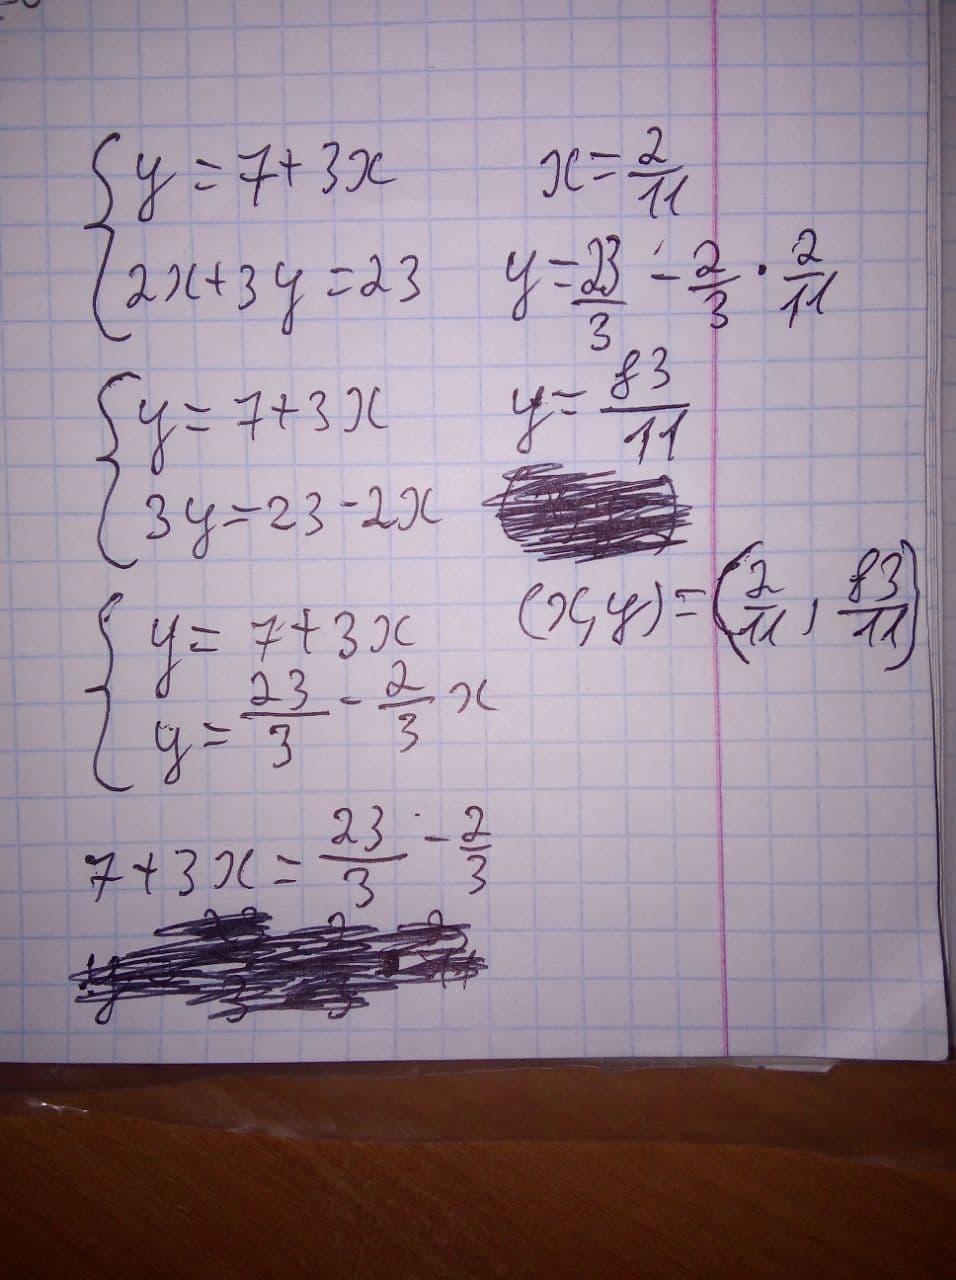 y = 7 + 3x
2x + 3y = 23
y = 7 + 3x
3y = 23 - 2x
y = 7 + 3x
y = 23/3 - 2/3 x
7 + 3x = 23/3 - 2/3
x = 2/11
y = 23/3 - 2/3 · 2/11
y = 83/11
(x, y) = (2/11, 83/11)